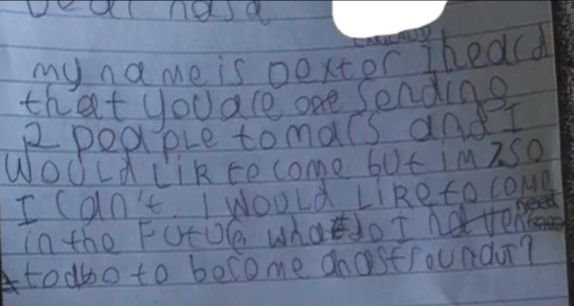 Dear nasa
my name is Dexter I heard
that you are one sending
2 people to mars and I
would lik to come but im 7 so
I can't. I would like to come
in the future what do I need
to do to become an astrounaut?